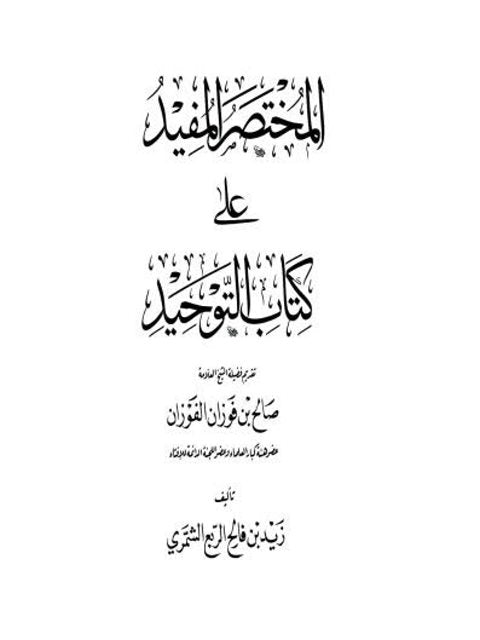 المُخْتَصَرُ المُفِيْدُ
عَلَى
كِتَابِ التَّوْحِيْدِ
تقديم فضيلة الشيخ العلامة
صَالح بن فَوزان الفَوْزَان
عضو هيئة كبار العلماء وعضو اللجنة الدائمة للإفتاء
تأليف
زَيْد بْن فَالح الرّبع الشمَّري